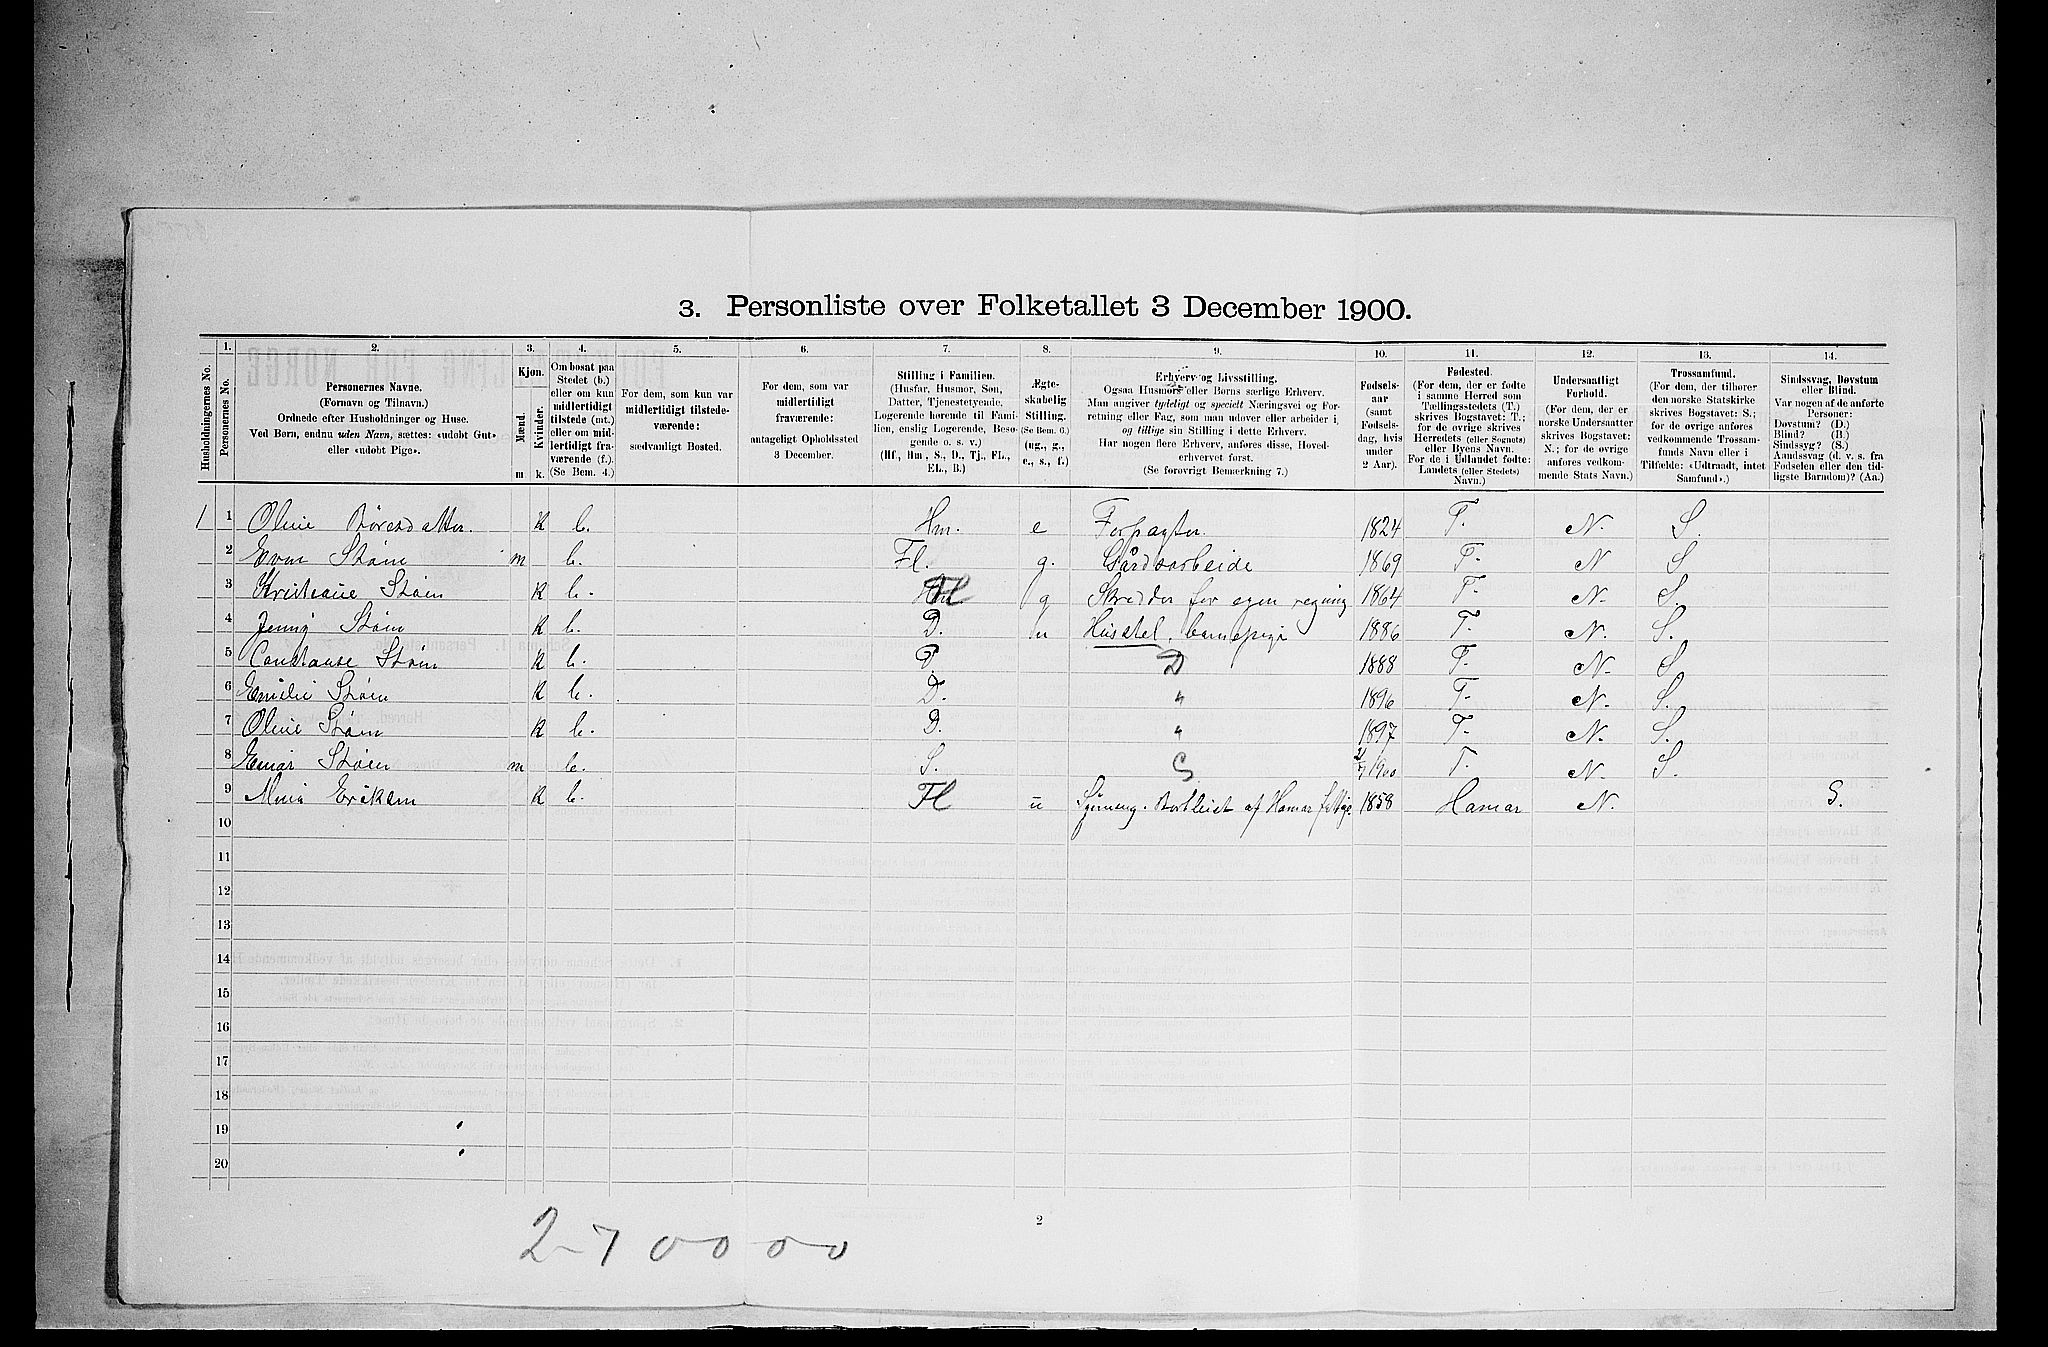 3. Personliste over Folketallet 3 December 1900.
Husholdningernes No.
1.
Personernes No.
2.
Personernes Navne.
(Fornavn og Tilnavn.)
Ordnede efter Husholdninger og Huse.
Ved Børn, endnu uden Navn, sættes: «udøbt Gut»
eller «udøbt Pige».
3.
Kjøn.
Mænd.
Kvinder.
m
k.
4.
Om bosat paa
Stedet (b.)
eller om kun
midlertidigt
tilstede (mt.)
eller om mid-
lertidigt fra-
værende (f.).
(Se Bem. 4.)
5.
For dem, som kun var
midlertidigt tilstede-
værende:
sædvanligt Bosted.
6.
For dem, som var
midlertidigt
fraværende:
antageligt Opholdssted
3 December.
7.
Stilling i Familien.
(Husfar, Husmor, Søn,
Datter, Tjenestetyende,
Logerende hørende til Fami-
lien, enslig Logerende, Besø-
gende o. s. v.)
(Hf., Hm., S., D., Tj., FL.,
EL., B.)
8.
Ægte-
skabelig
Stilling.
(Se Bem. 6.)
(ug., g.,
e., s., f.)
9.
Erhverv og Livsstilling.
Ogsaa Husmors eller Børns særlige Erhverv.
Man angiver tydeligt og specielt Næringsvei og For-
retning eller Fag, som man udøver eller arbeider i,
og tillige sin Stilling i dette Erhverv.
Har nogen flere Erhverv, anføres disse, Hoved-
erhvervet først.
(Se forøvrigt Bemærkning 7.)
10.
Fødsels-
aar
(samt
Fødsels-
dag, hvis
under
2 Aar).
11.
Fødested.
(For dem, der er fødte
i samme Herred som
Tællingsstedets (T.)
skrives Bogstavet: T.;
for de øvrige skrives
Herredets (eller Sognets)
eller Byens Navn.
For de i Udlandet fødte:
Landets (eller Stedets)
Navn.)
12.
Undersaatligt
Forhold.
(For dem, der er
norske Undersaatter
skrives Bogstavet:
N.; for de øvrige
anføres vedkom-
mende Stats Navn.)
13.
Trossamfund.
(For dem, der tilhører
den norske Statskirke
skrives Bogstavet: S.;
for de øvrige anføres
vedkommende Trossam-
funds Navn eller i
Tilfælde: «Udtraadt, intet
Samfund».)
14.
Sindssvag, Døvstum
eller Blind.
Var nogen af de anførte
Personer:
Døvstum? (D.)
Blind? (B.)
Sindssyg? (S.)
Aandssvag (d. v. s. fra
Fødselen eller den tid-
ligste Barndom)? (Aa.)
1 1 Oline K b. Hm. e Forpagter. 1824 T. N. S.
2 Even Støen m b. Fl. g. Gårdsarbeide 1869 T. N S
3 Kristiane Støen K b. Fl g Skredder for egen regning 1864 T. N. S.
4 Jenny Støen K b. D. u Husstel, barnepige 1886 T. N. S.
5 Constance Støen K b. D. D 1888 T. N. S
6 Emilie Støen K b. D. " 1896 T. N. S.
7 Oline Støen K b. D. " 1897 T. N. S.
8 Einar Støen m b. S. S 1900 T. N. S.
9 Eriksen K b. Fl u af Hamar 1858 Hamar N. S.
10
11
12
13
14
15
16
17
18
19
20
2
270000